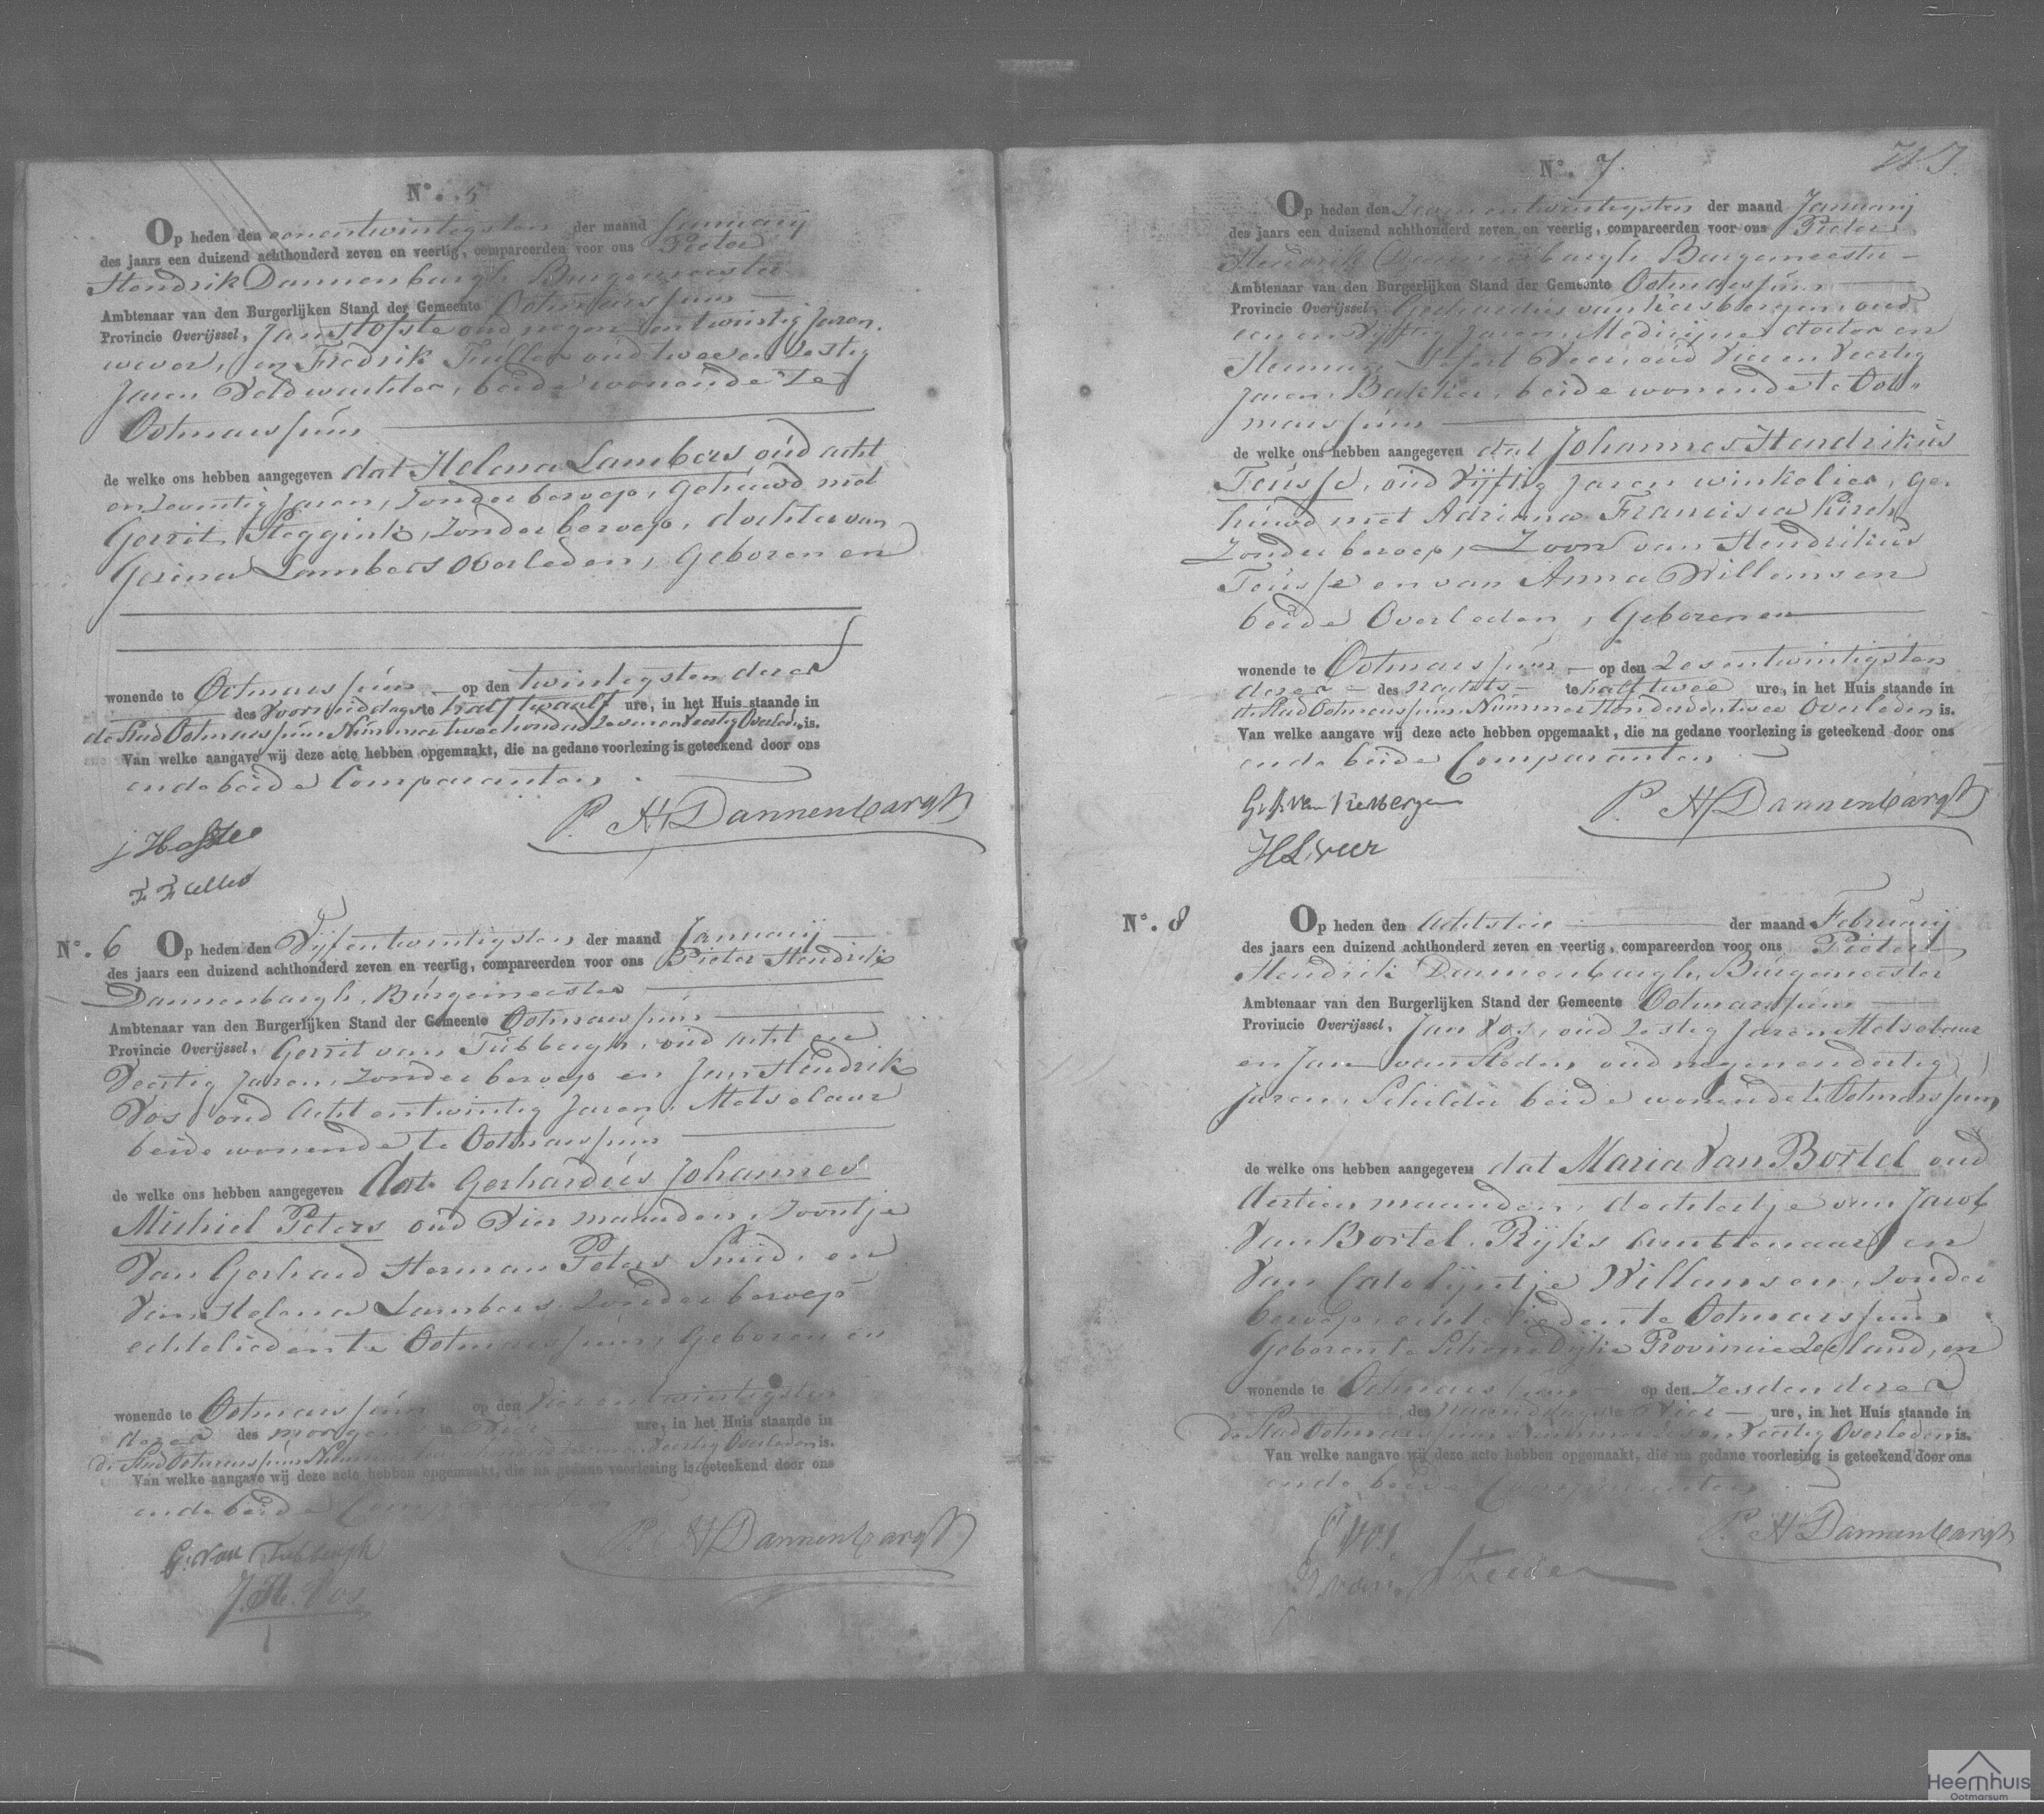 N°. 5
Op heden den eenentwintigsten der maand Januarij
des jaars een duizend achthonderd zeven en veertig, compareerden voor ons Pieter
Hendrik Dannenbargh Burgemeester
Ambtenaar van den Burgerlijken Stand der Gemeente Ootmarssum
Provincie Overijssel, Jan Hofste oud negen entwintig Jaren,
wever, en Fredrik Fuller oud twee en Zestig
Jaren Veldwachter, beide wonende te
Ootmarssum
de welke ons hebben aangegeven dat Helena Lambers oud acht
en Zeventig Jaren, Zonder beroep, gehuwd met
Gerrit Steggink, Zonder beroep, dochter van
Gerina Lambers Overleden, Geboren en
wonende te Ootmarssum op den twintigsten dezer
des Voormiddags te half twaalf ure, in het Huis staande in
de Stad Ootmarssum Nummer twee honderd Zeven en Veertig Overleden is.
Van welke aangave wij deze acte hebben opgemaakt, die na gedane voorlezing is geteekend door ons
en de beide Comparanten
P. H Dannenbargh
j Hofste
F Fuller
N°. 6 Op heden den Vijfentwintigsten der maand Januarij
des jaars een duizend achthonderd zeven en veertig, compareerden voor ons Pieter Hendrik
Dannenbargh, Burgemeester
Ambtenaar van den Burgerlijken Stand der Gemeente Ootmarssum
Provincie Overijssel, Gerrit van Tubbergh, oud acht en
Veertig Jaren, Zonder beroep en Jan Hendrik
Vos oud Acht entwintig Jaren, Metselaar
beide wonende te Ootmarssum
de welke ons hebben aangegeven dat Gerhardus Johannes
Michiel Peters oud Vier maanden, Zoontje
Van Gerhard Herman Peters Smid, en
Van Helena Lambers Zonder beroep
echtelieden te Ootmarssum, Geboren en
wonende te Ootmarssum op den Vierentwintigsten
dezer des morgens te Vier ure, in het Huis staande in
de Stad Ootmarssum Nummer Veertig Overleden is.
Van welke aangave wij deze acte hebben opgemaakt, die na gedane voorlezing is geteekend door ons
en de beide Comparanten
P. H Dannenbargh
G. van Tubbergh
J. H. Vos
N°. 7
Op heden den Zevenentwintigsten der maand Januarij
des jaars een duizend achthonderd zeven en veertig, compareerden voor ons Pieter
Hendrik Dannenbargh Burgemeester
Ambtenaar van den Burgerlijken Stand der Gemeente Ootmarssum
Provincie Overijssel, Gerhardus van Kersbergen, oud
een en Vijftig Jaren, Medicijne doctor en
Herman Veer, oud Vier en Veertig
Jaren, Bakker, beide wonende te Oot"
marssum
de welke ons hebben aangegeven dat Johannes Hendrikus
Teusse, oud Vijftig Jaren winkelier, ge-
huwd met Adriana Francisca Kirch
Zonder beroep, Zoon van Hendrikus
Teusse en van Anna Willemsen
beide Overleden, Geboren en
wonende te Ootmarssum op den Zesentwintigsten
dezer des Nachts te half twee ure, in het Huis staande in
de Stad Ootmarssum Nummer Honderdentwee Overleden is.
Van welke aangave wij deze acte hebben opgemaakt, die na gedane voorlezing is geteekend door ons
en de beide Comparanten
P. H Dannenbargh
H L Veer
N°. 8 Op heden den Achtsten der maand Februarij
des jaars een duizend achthonderd zeven en veertig, compareerden voor ons Pieter
Hendrik Dannenbargh, Burgemeester
Ambtenaar van den Burgerlijken Stand der Gemeente Ootmarssum
Provincie Overijssel, Jan Vos, oud Zestig Jaren Metselaar
en Jan van Steden, oud negenendertig
Jaren, Schilder beide wonende te Ootmarssum
de welke ons hebben aangegeven dat Maria Van Bortel oud
dertien maanden, dochtertje van Jacob
Van Bortel, Rijks Ambtenaar, en
Van Catolijntje Willemsen, Zonder
beroep, echtelieden te Ootmarssum
Geboren te Schoondijke Provincie Zeeland, en
wonende te Ootmarssum op den Zesden dezer
des namiddags te Vier ure, in het Huis staande in
de Stad Ootmarssum Nummer Zeven Veertig Overleden is.
Van welke aangave wij deze acte hebben opgemaakt, die na gedane voorlezing is geteekend door ons
en de beide Comparanten
P. H Dannenbargh
J Vos
J van Steeden
Heemhuis
Ootmarsum